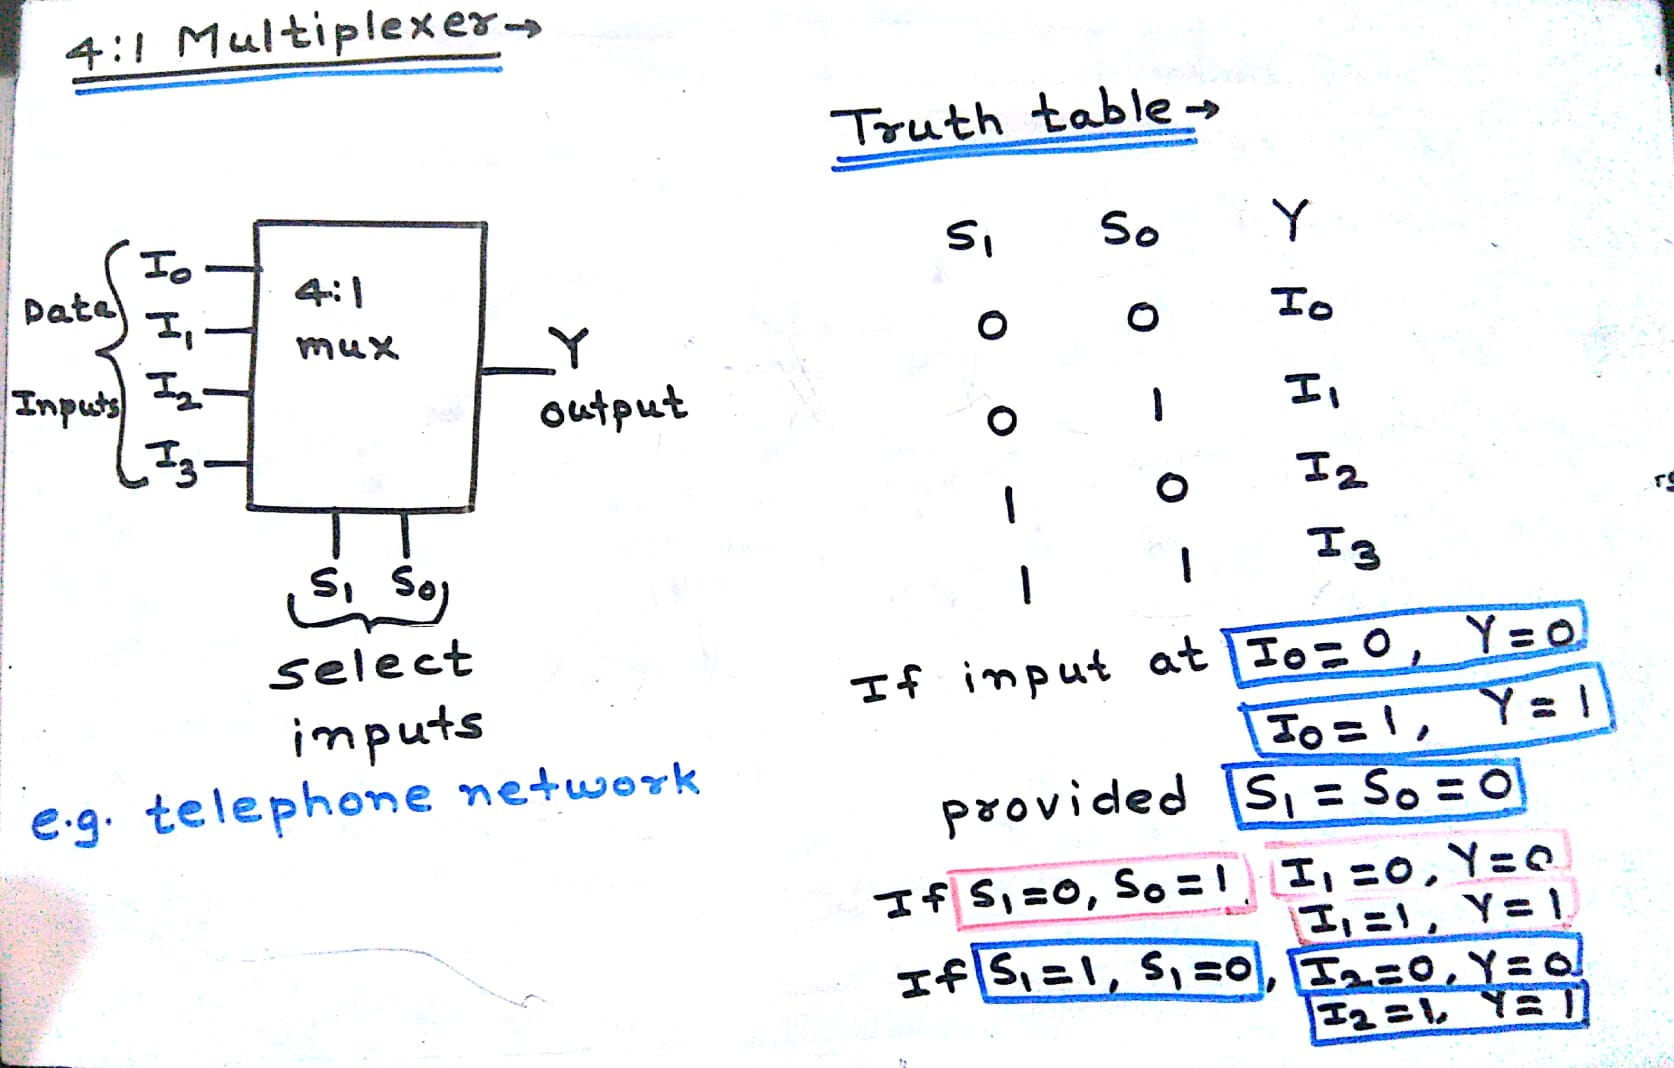 4:1 Multiplexer→
Data Inputs
I0
I1
I2
I3
4:1
mux
Y
output
S1 S0
select
inputs
e.g. telephone network
Truth table→
S1 S0 Y
0 0 I0
0 1 I1
1 0 I2
1 1 I3
If input at I0=0, Y=0
I0=1, Y=1
provided S1=S0=0
If S1=0, S0=1 I1=0, Y=0
I1=1, Y=1
If S1=1, S1=0, I2=0, Y=0
I2=1, Y=1